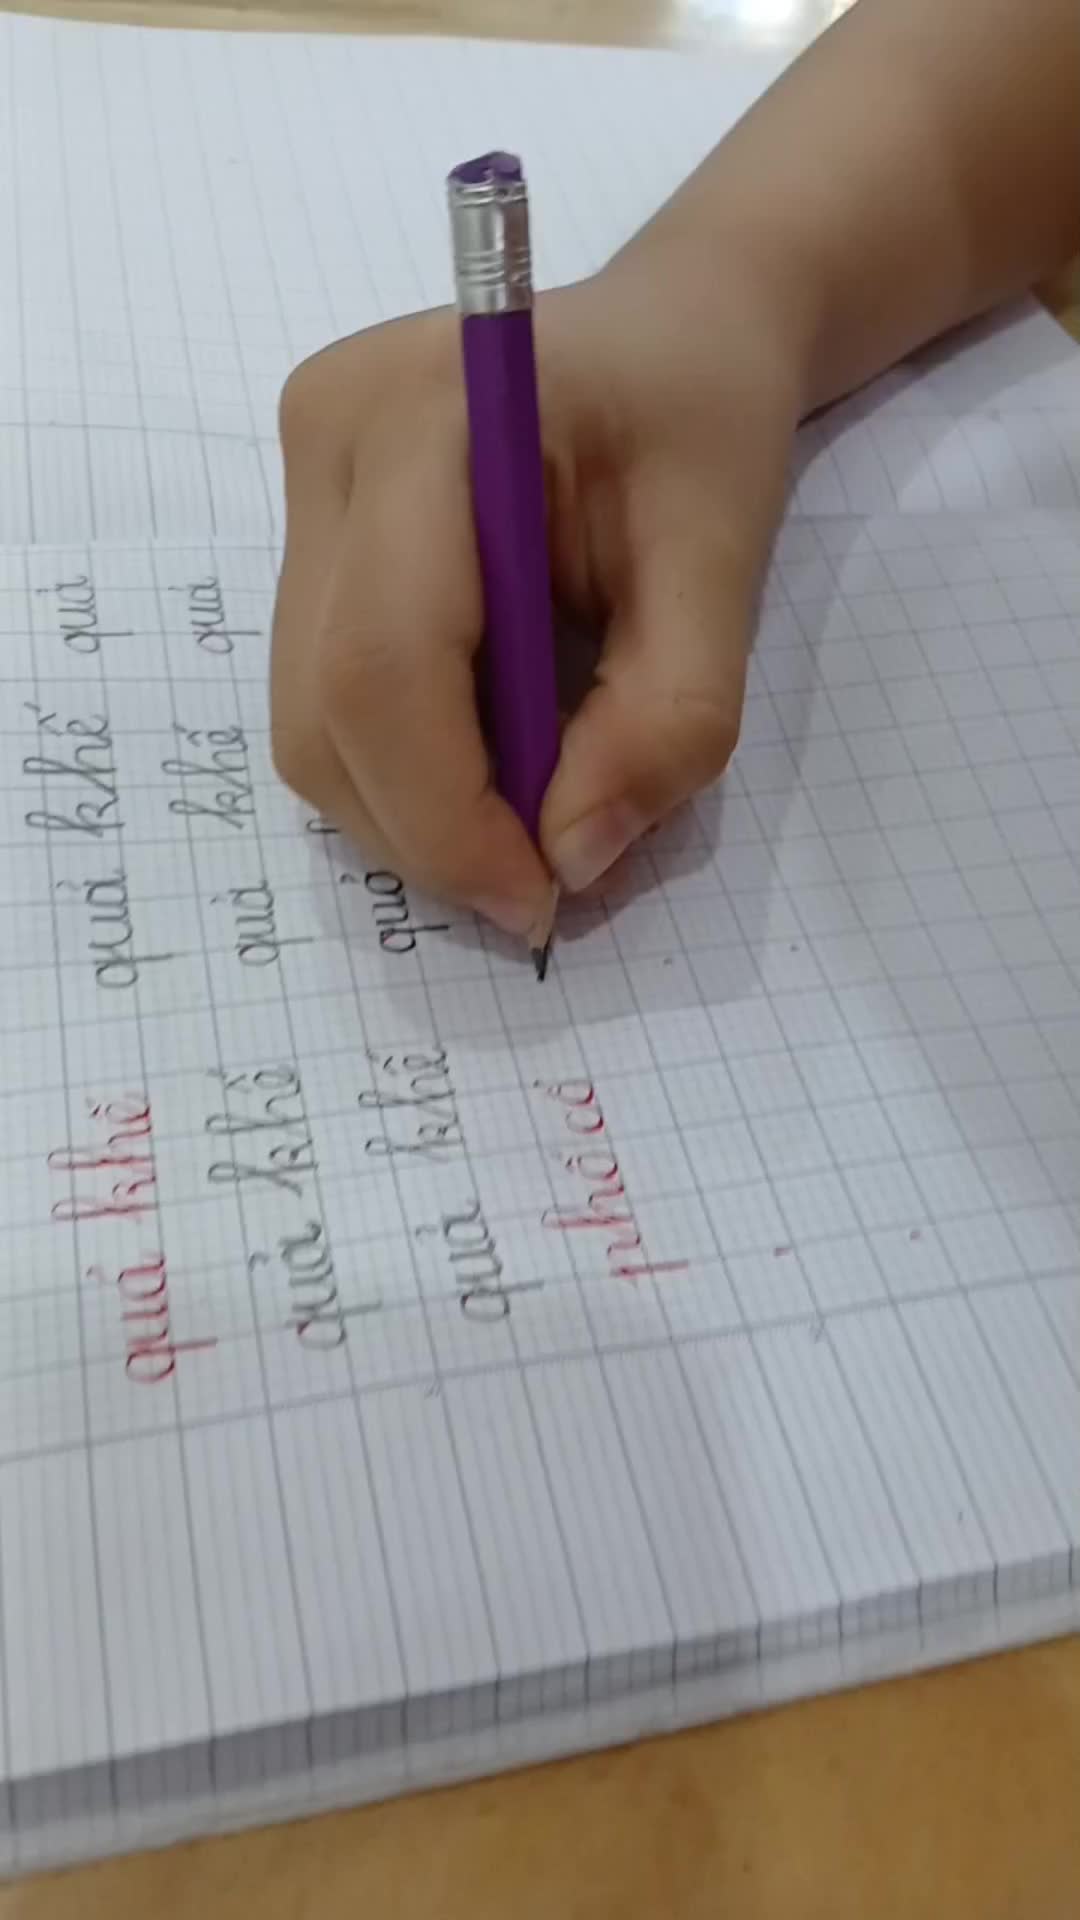 quả khế quả khế quả
quả khế quả khế quả
quả khế quả
phố cổ